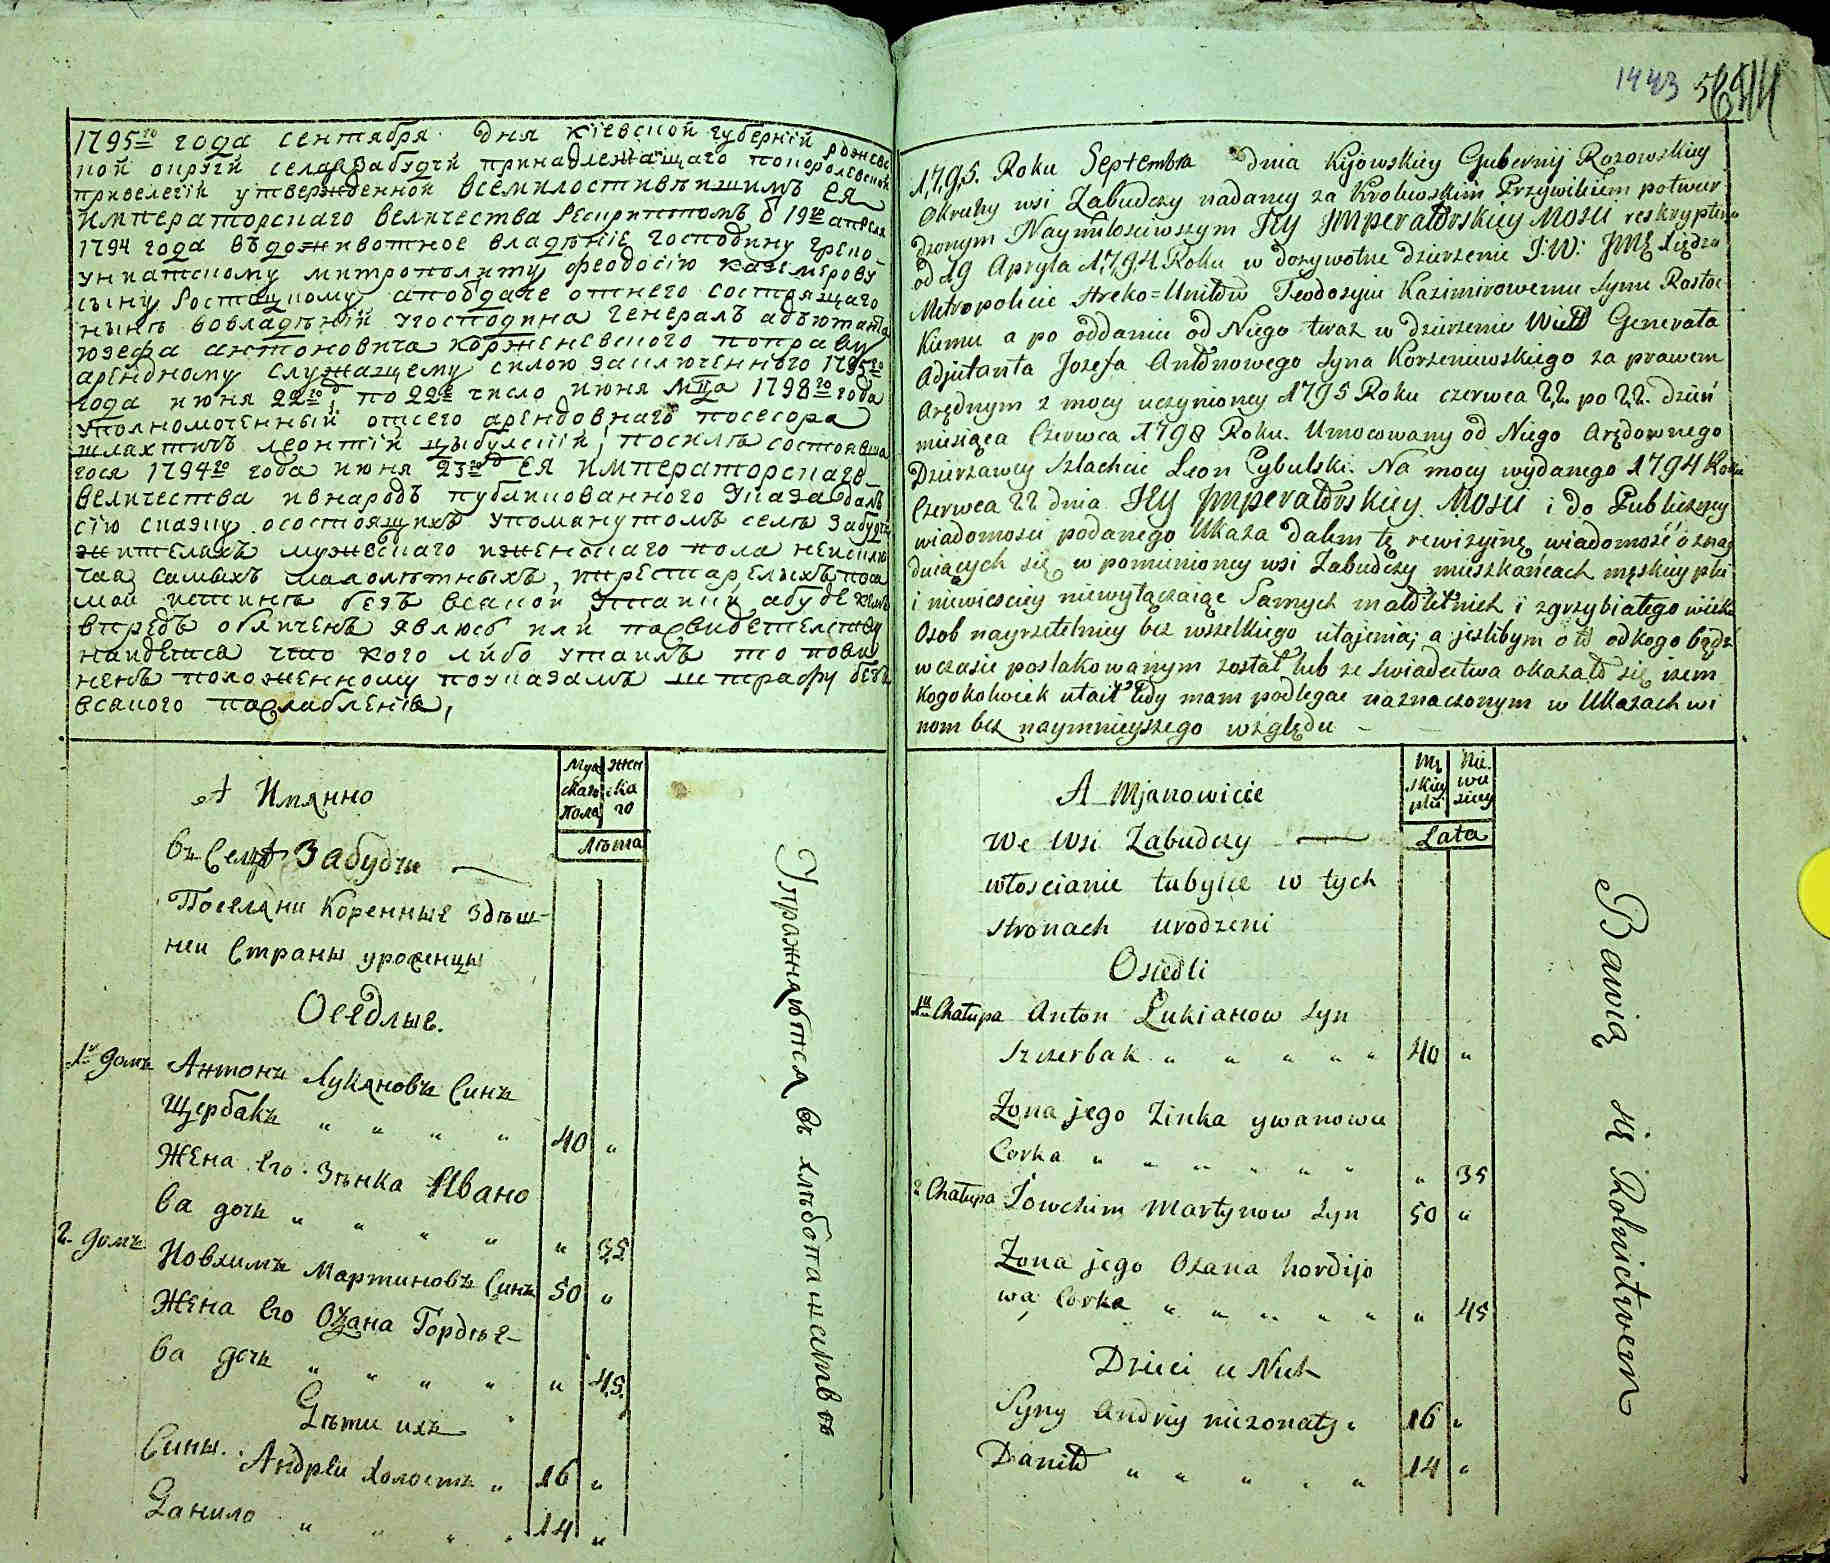 1795го года сентября дня кіевской губерніи ржевс
кой округи села Забудчи принадлежащаго покоролевской
привелегіи утвержденной всемилостивѣишимъ ея
императорскаго величества рескриптомъ о 19го апреля
1794 года въдоживотное владѣніе господину греко-
униатскому митрополиту феодосію каземерову
сыну Ростоцкому апоотдаче отнего состоящаго
нынѣ вовладѣніи угосподина генералъ адъютанта
юзефа антоновича корженевского поправу
арендному служащему силою заключенного 1795го
года июня 22го по 22е число июня Мца 1798го года
уполномоченный отсего арендовнаго посесора
шляхтичъ леонтій цыбулскій, посилѣ состоявша
гося 1794го года июня 23го ея императорскаго
величества ивнародъ публикованного указа далъ
сію сказку осостоящихъ упоманутомъ селѣ Забудчи
жителахъ мужескаго иженскаго пола неисклю
чая самыхъ малолѣтныхъ, ипрестарелыхъ, поса
мой истинѣ безъ всакой утайки, абуде кемъ
впредь обличенъ явлюсь или посвидетелству
наидется что кого либо утаилъ то пови
ненъ положенному поуказамъ штрафу безъ
всакого послабленіа,
Муж скаго пола
Жен ска го
Лѣта
А Имянно
въ Селѣ Забудчи
Поселяни коренные здѣш-
неи страны уроженцы
Оседлые.
1й домъ Антонъ Лукяновъ Синъ
Щербакъ " " " " 40 "
Жена его Зѣнка Ивано
ва дочь " " " " " 35
2 домъ Иовхимъ Мартиновъ Синъ 50 "
Жена Его Оздана Гордѣе-
ва дочь " " " " " 45.
Дѣти ихъ
Сины. Андреи холостъ " 16 "
Данило " " " " 14 "
Упражняются въ хлѣбопашествѣ
1443
1795. Roku Septembra dnia Kijowskiey Gubernij Rozowskiey
Okruhy wsi Zabudczy nadaney za Krolewskim Przywileiem potwier
dzonym Naymiłosciwszym Jey Jmperatorskiey Mosci reskryptem
od 19 Apryla 1794 Roku w dozywotne dzierzenie J:W: Jmę Xiędza
Metropolicie Hreko=Unitów Teodozyiu Kazimirowemu Synu Rostoc
kiemu a po oddaniu od Niego teraz w dzierzenie Wieł Generała
Adjutanta Jozefa Antonowego Syna Korzeniewskiego za prawem
Arędnym z mocy uczynioney 1795 Roku czerwca 22 po 22. dzień
miesiąca Czerwca 1798 Roku. Umocowany od Niego Arędownego
Dzierzawcy Szlachcic Leon Cybulski. Na mocy wydanego 1794 Roku
Czerwca 22 dnia Jey Jmperatorskiey Mosci i do Publiczney
wiadomosci podanego Ukaza dałem tę rewizyinę wiadomość o znay
duiących się w pomienioney wsi Zabudczy mieszkańcach męskiey płci
i niewiesciey niewyłączaiąc Samych małoletnich i zgrzybiałego wieku
Osob nayrzetelniey bez wszelkiego utajenia; a jeslibym o to odkogo bądź
wczasie poszlakowanym został lub ze swiadectwa okazało się izem
kogokolwiek utaił tedy mam podlegac naznaczonym w Ukazach wi
nom bez naymnieyszego względu —
Mę skiey płci
Nie wie sciey
Lata
A Mianowicie
We Wsi Zabudczy —
włoscianie tubylce w tych
stronach urodzeni
Osiedli
1u Chałupa Anton Łukianow Syn
Szczerbak " " " " " 40 "
Zona jego Zinka ywanowa
Corka " " " " " " " 35
2 Chałupa Jowchim Martynow Syn 50 "
Zona jego Ozana hordijo
wa, Corka " " " " " " 45
Dzieci u Nich
Syny Andriy niezonaty " 16 "
Daniło " " " " " 14 "
Bawią się Rolnictwem